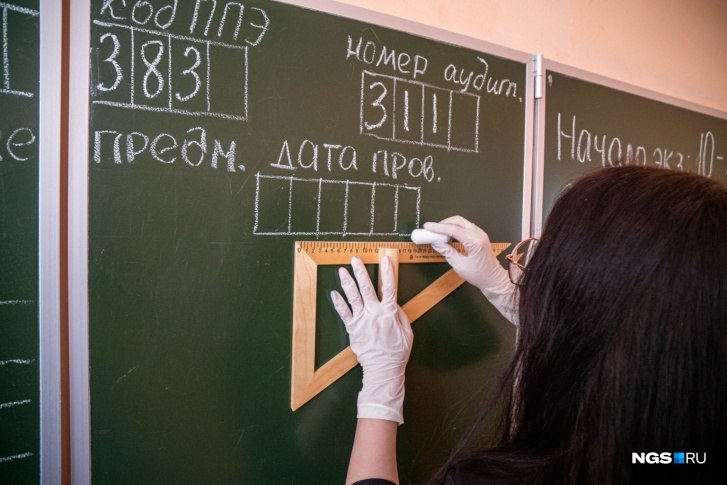 Код ППЭ
383
номер аудит.
311
предм.
дата пров.
Начало экз: 10-
е
NGS.RU